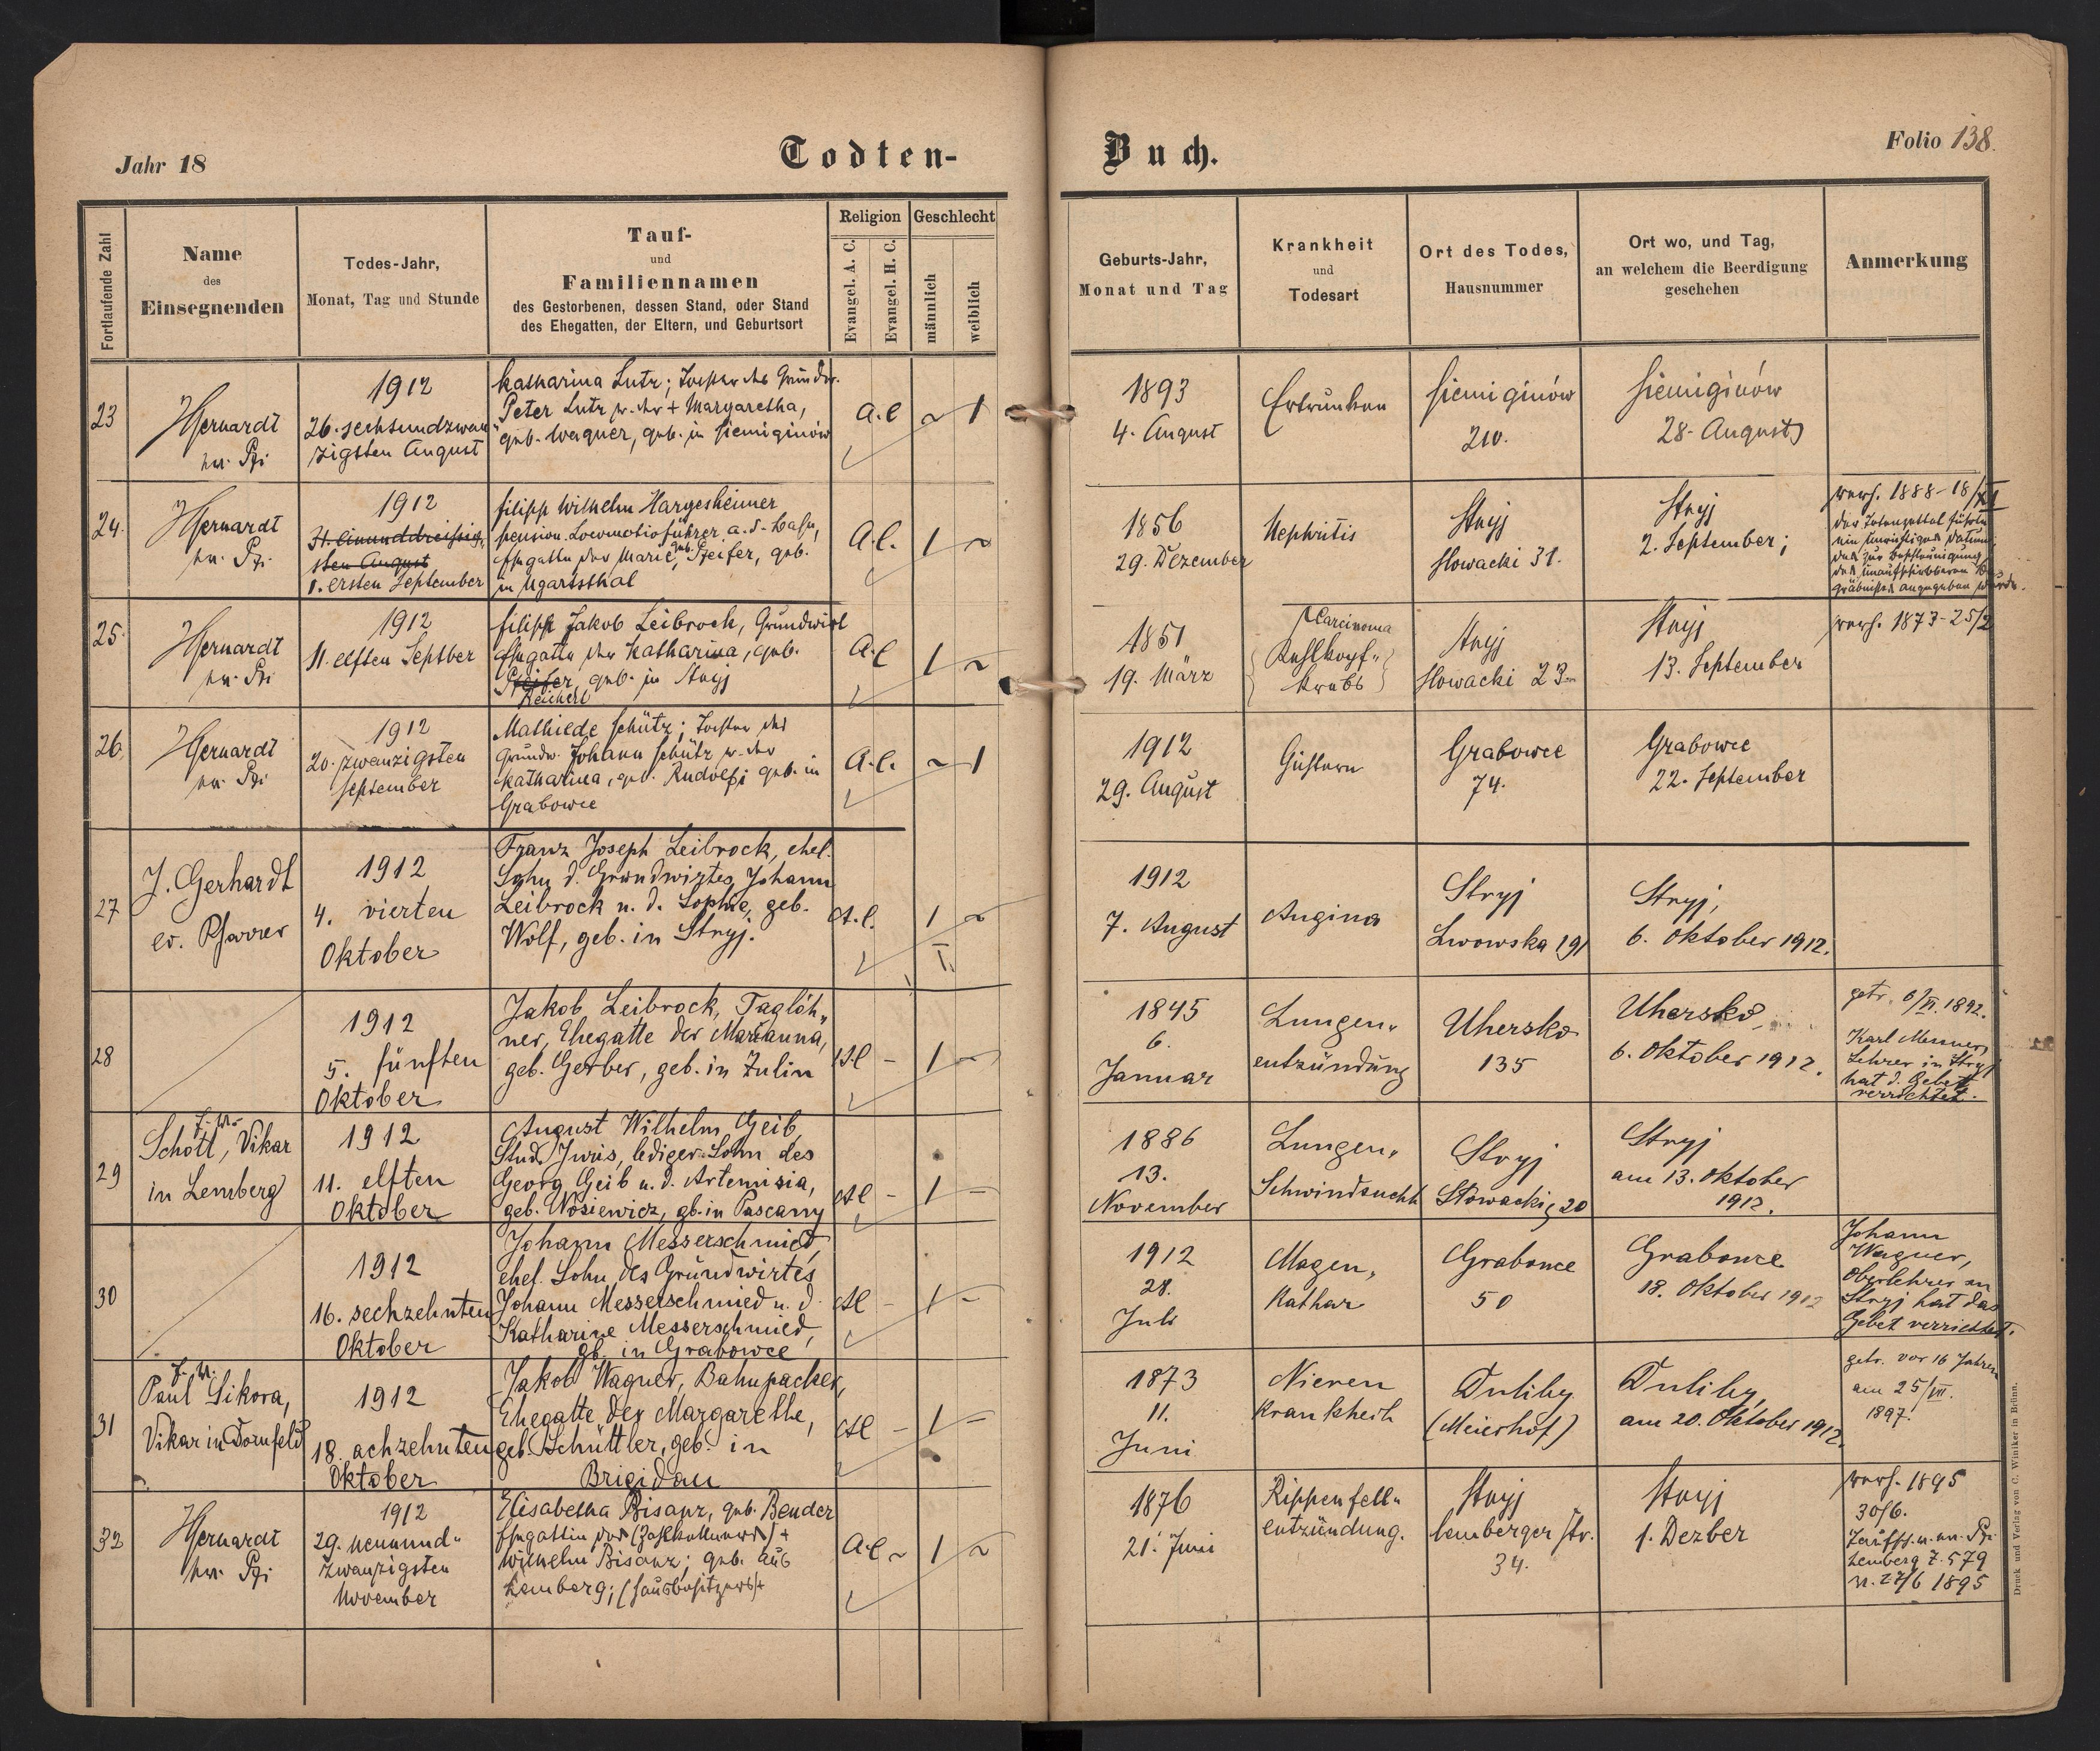 Jahr 18
Todten-
Buch.
Folio 138.
Fortlaufende Zahl
Name
des
Einsegnenden
Todes-Jahr,
Monat, Tag und Stunde
Tauf-
und
Familiennamen
des Gestorbenen, dessen Stand, oder Stand
des Ehegatten, der Eltern, und Geburtsort
Religion
Evangel. A. C.
Evangel. H. C.
Geschlecht
männlich
weiblich
Geburts-Jahr,
Monat und Tag
Krankheit
und
Todesart
Ort des Todes,
Hausnummer
Ort wo, und Tag,
an welchem die Beerdigung
geschehen
Anmerkung
23
1912
26. sechsundzwan
zigsten August
Katharina Lutz; Tochter des Grundw.
Peter Lutz u. der + Margaretha,
geb. Wagner, geb. in Siemiginów
A.C
~ 1
1893
4. August
Ertrunken
Siemiginów
210.
Siemiginów
28. August
24.
1912
31. Einunddreissig
sten August
1. ersten September
Filipp Wilhelm Hargesheimer
pension. Locomotivführer a. d. Bahn,
Ehegatte der Marie, geb. Pfeifer, geb.
in Ugartsthal
A.C.
1 ~
1856
29. Dezember
Nephritis
Stryj
Slowacki 31.
Stryj
2. September;
verh. 1888-18/XI
der Totenzettel führte
ein unrichtiges Datum,
das zur Beschleunigung
des unaufschiebbaren Be
gräbnisses angegeben wurde.
25.
1912
11. elften Septber
Filipp Jakob Leibrock, Grundwirt
Ehegatte der Katharina, geb.
Pfeifer, geb. in Stryj
Reichert
A.C
1 ~
1851
19. März
Carcinoma
Kehlkopf-
krebs
Stryj
Slowacki 23
Stryj
13. September
verh. 1873-25/2
26.
1912
20. zwanzigsten
September
Mathilde Schütz; Tochter des
Grundw. Johann Schütz u. der
Katharina, geb. Rudolfi geb. in
Grabowce
A.C.
~ 1
1912
29. August
Grabowce
74.
Grabowce
22. September
27
J. Gerhardt
ev. Pfarrer
1912
4. vierten
Oktober
Franz Joseph Leibrock, ehel.
Sohn d. Grundwirtes Johann
Leibrock u. d. Sophie, geb.
Wolf, geb. in Stryj.
A.C.
1 ~
I.
1912
7. August
Angina
Stryj
Lwowska 191
Stryj,
6. Oktober 1912.
28
1912
5. fünften
Oktober
Jakob Leibrock, Taglöh„
ner, Ehegatte der Marianna,
geb. Gerber, geb. in Zulin
AC - 1 -
1845
6.
Januar
Lungen„
entzündung
Uhersko
135
Uhersko,
6. Oktober 1912.
getr. 6/VI. 1892.
Karl Messner,
Lehrer in Stryj
hat d. Gebet
verrichtet.
29
Schott, Vikar
in Lemberg
1912
11. elften
Oktober
August Wilhelm Geib,
Stud. Juris, lediger Sohn des
Georg Geib u. d. Artemisia,
geb. Nosiewicz, gb. in Pascany
AC - 1 -
1886
13.
November
Lungen„
Schwindsucht
Stryj
Slowacki 20
Stryj
am 13. Oktober
1912.
30
1912
16. sechzehnten
Oktober
Johann Messerschmied,
ehel. Sohn des Grundwirtes
Johann Messerschmied u. d.
Katharine Messerschmied,
gb. in Grabowce
AC - 1 -
1912
28.
Juli
Magen„
Kathar
Grabowce
50
Grabowce
18. Oktober 1912
Johann
Wagner,
Oberlehrer in
Stryj hat das
Gebet verrichtet.
31
Paul Sikora,
Vikar in Dornfeld
1912
18. achzehnten
Oktober
Jakob Wagner, Bahnpacker,
Ehegatte der Margarethe,
geb. Schüttler, geb. in
Brigidau
AC - 1 -
1873
11.
Juni
Nieren
krankheit
Duliby
(Meierhof)
Duliby,
am 20. Oktober 1912.
getr. vor 16 Jahren
am 25/VII.
1897.
32
1912
29. neunund-
zwanzigsten
November
Elisabetha Bisanz, geb. Bender
Ehegattin des (Zahlkellners) +
Wilhelm Bisanz; geb. aus
Lemberg; (Hausbesitzers)+
A.C ~ 1 ~
1876
21. Juni
Rippenfell-
entzündung.
Stryj
Lemberger Str.
34.
Stryj
1. Dezber
verh. 1895
30/6.
Lemberg Z. 579
v. 27/6 1895
Druck und Verlag von C. Winiker in Brünn.